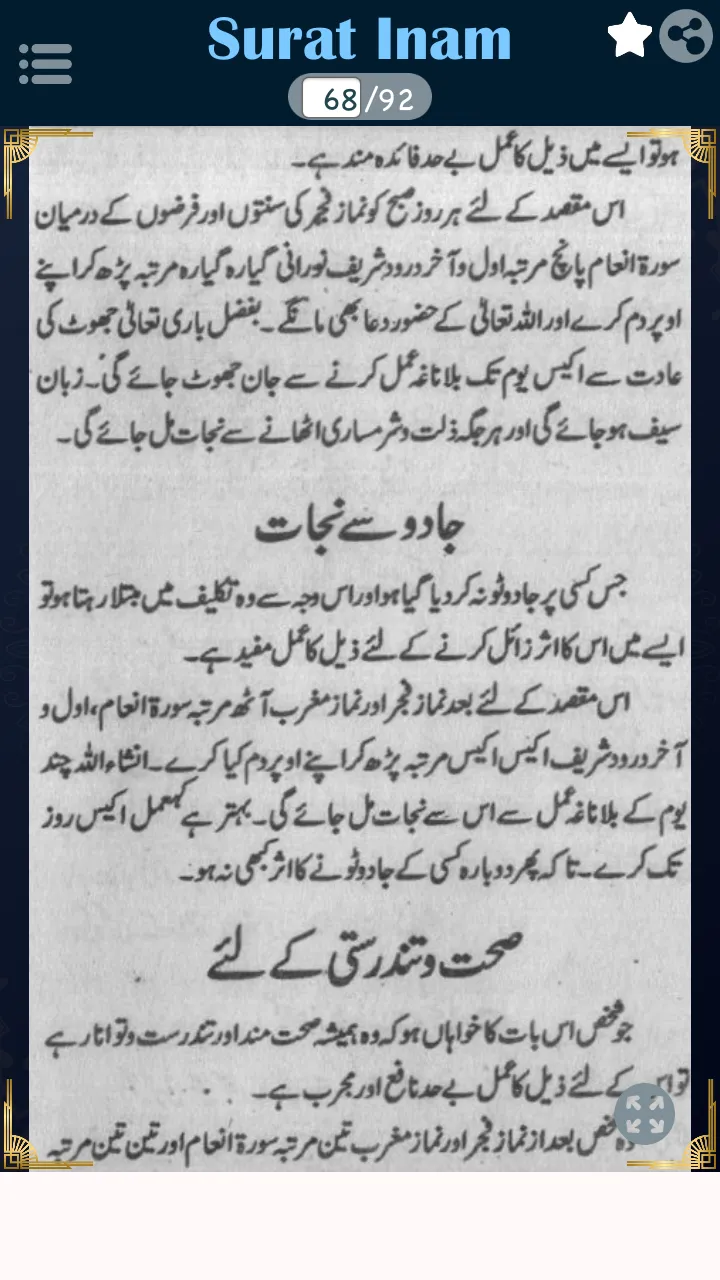 Surat Inam
68/92
ہو تو ایسے میں ذیل کا عمل بے حد فائدہ مند ہے۔
اس مقصد کے لئے ہر روز صبح کو نماز فجر کی سنتوں اور فرضوں کے درمیان
سورۃ انعام پانچ مرتبہ اول و آخر درود شریف نورانی گیارہ گیارہ مرتبہ پڑھ کر اپنے
اوپر دم کرے اور اللہ تعالیٰ کے حضور دعا بھی مانگے۔ بفضل باری تعالیٰ جھوٹ کی
عادت سے اکیس یوم تک بلا ناغہ عمل کرنے سے جان چھوٹ جائے گی۔ زبان
سیف ہو جائے گی اور ہر جگہ ذلت و شرمساری اٹھانے سے نجات مل جائے گی۔
جادو سے نجات
جس کسی پر جادو ٹونہ کر دیا گیا ہو اور اس وجہ سے وہ تکلیف میں مبتلا رہتا ہو تو
ایسے میں اس کا اثر زائل کرنے کے لئے ذیل کا عمل مفید ہے۔
اس مقصد کے لئے بعد نماز فجر اور نماز مغرب آٹھ مرتبہ سورۃ انعام، اول و
آخر درود شریف اکیس اکیس مرتبہ پڑھ کر اپنے اوپر دم کیا کرے۔ انشاء اللہ چند
یوم کے بلا ناغہ عمل سے اس سے نجات مل جائے گی۔ بہتر ہے کہ عمل اکیس روز
تک کرے۔ تا کہ پھر دوبارہ کسی کے جادو ٹونے کا اثر کبھی نہ ہو۔
صحت و تندرستی کے لئے
جو شخص اس بات کا خواہاں ہو کہ وہ ہمیشہ صحت مند اور تندرست و توانا رہے
تو اس کے لئے ذیل کا عمل بے حد نافع اور مجرب ہے۔
وہ شخص بعد از نماز فجر اور نماز مغرب تین مرتبہ سورۃ انعام اور تین تین مرتبہ